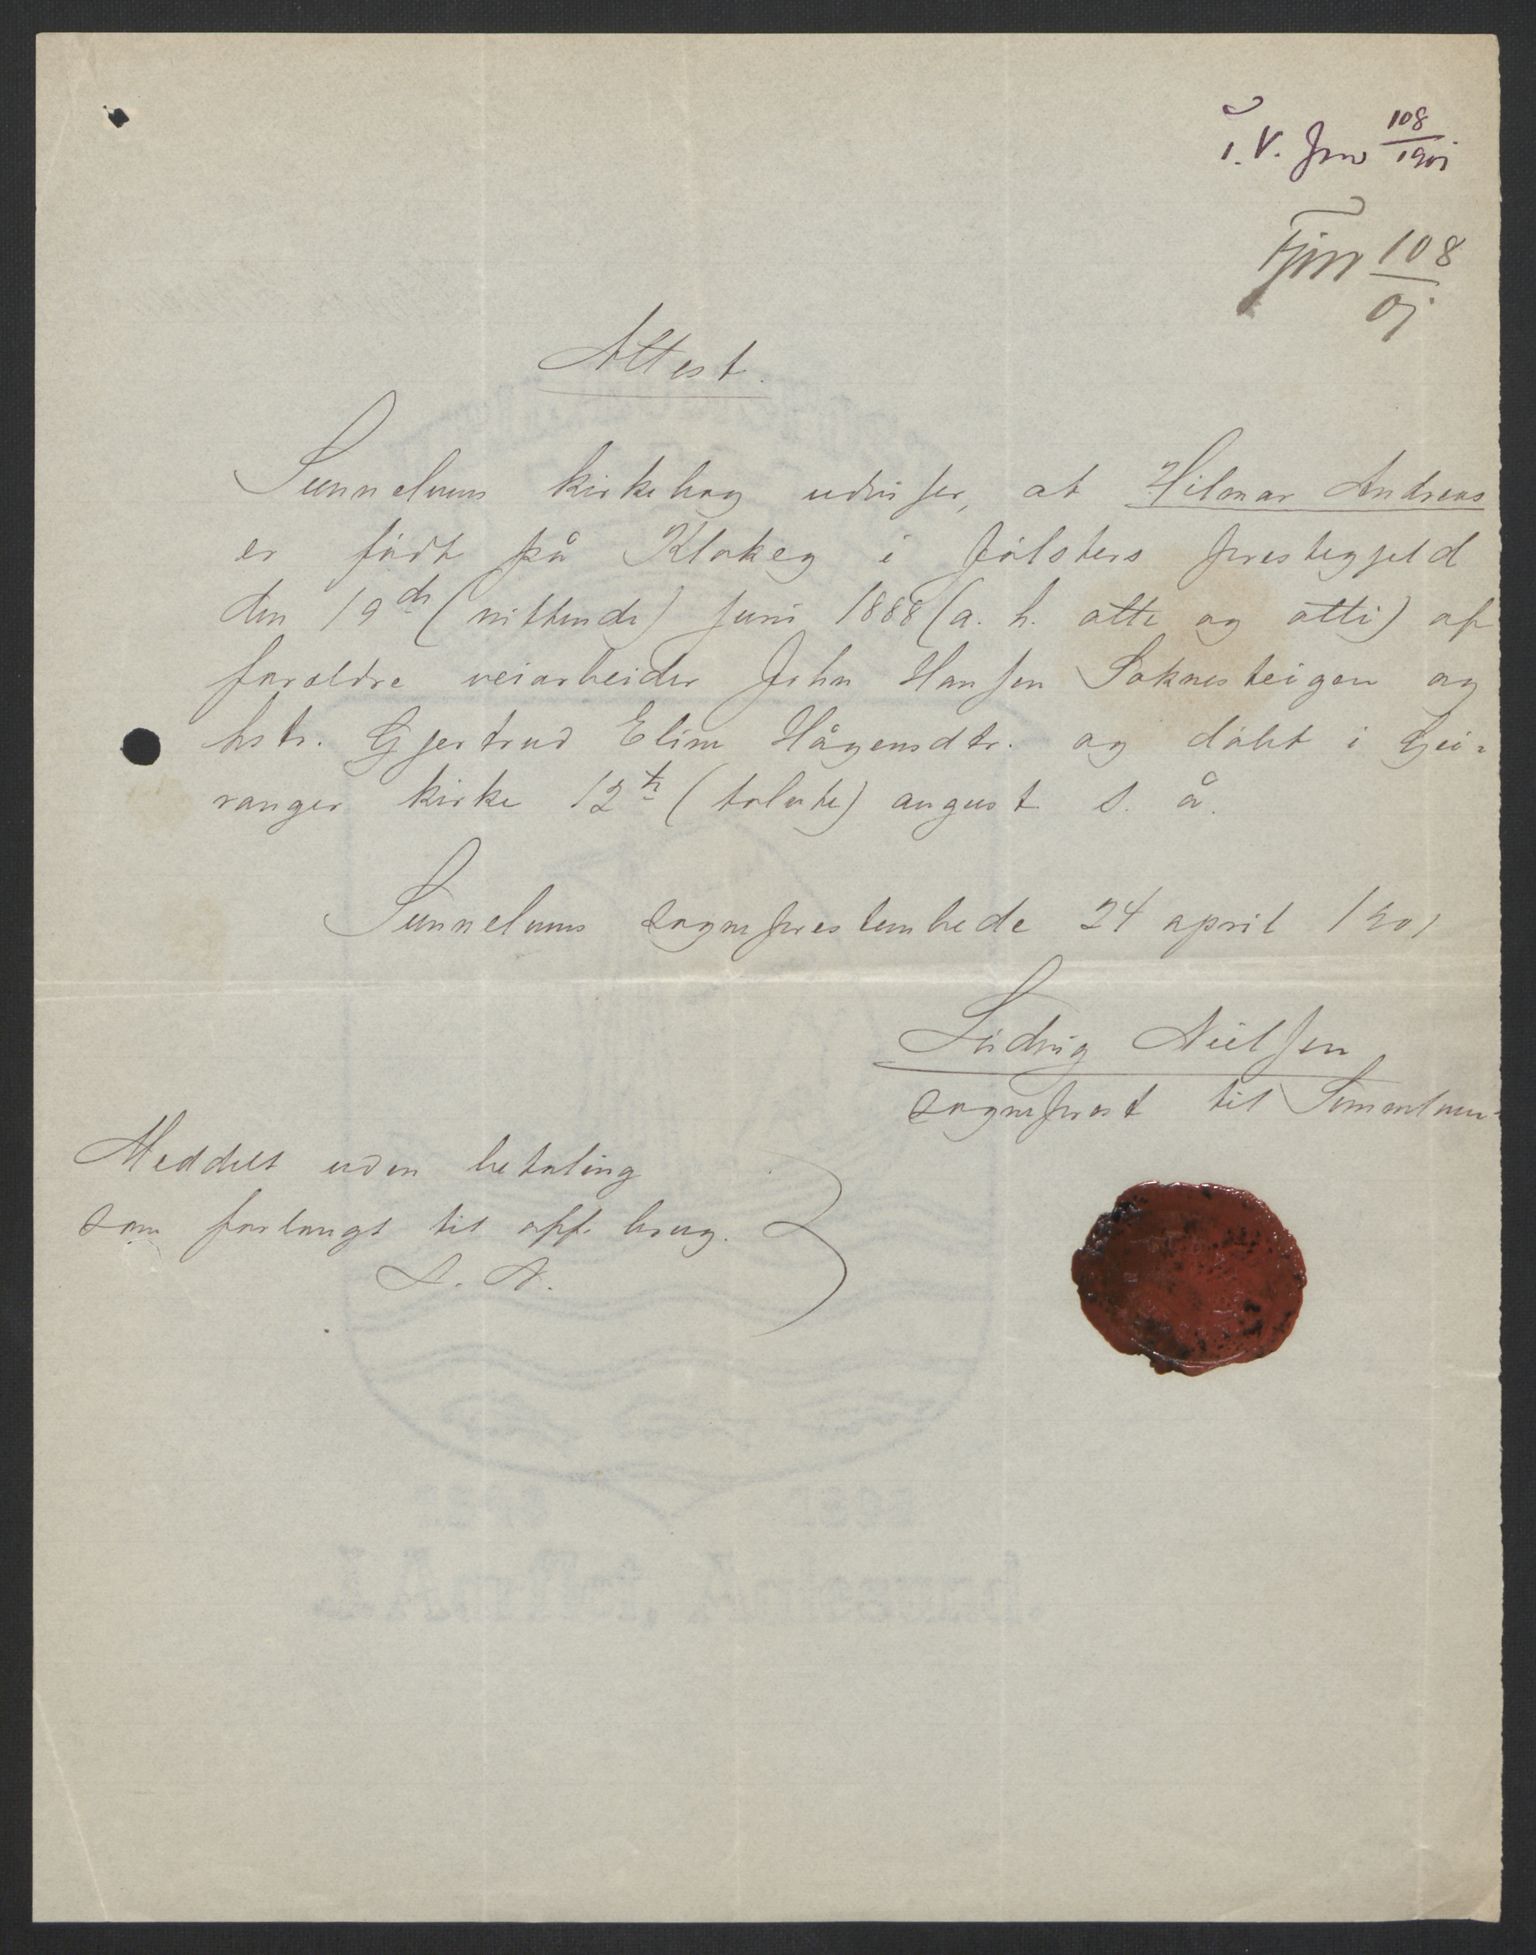 I. V. Jno 108/1901
Fjno 108/01
Attest.
Sunnelvens kirkebog udviser, at Hilmar Andreas
er født på Klakeg i Jølsters prestegjeld
den 19de (nittende) Juni 1888 (a. h. otte og otti) af
foreldre veiarbeider John Hansen Soknesteigen og
hstr. Gjertrud Eline Hågensdtr. og døbt i Gei-
ranger kirke 12te (tolvte) august s. å.
Sunnelvens sogneprestembede 24 april 1901
Ludvig Nielsen
sogneprest til Sunnelven
Meddelt uden betaling
som forlangt til off. brug.
L. N.